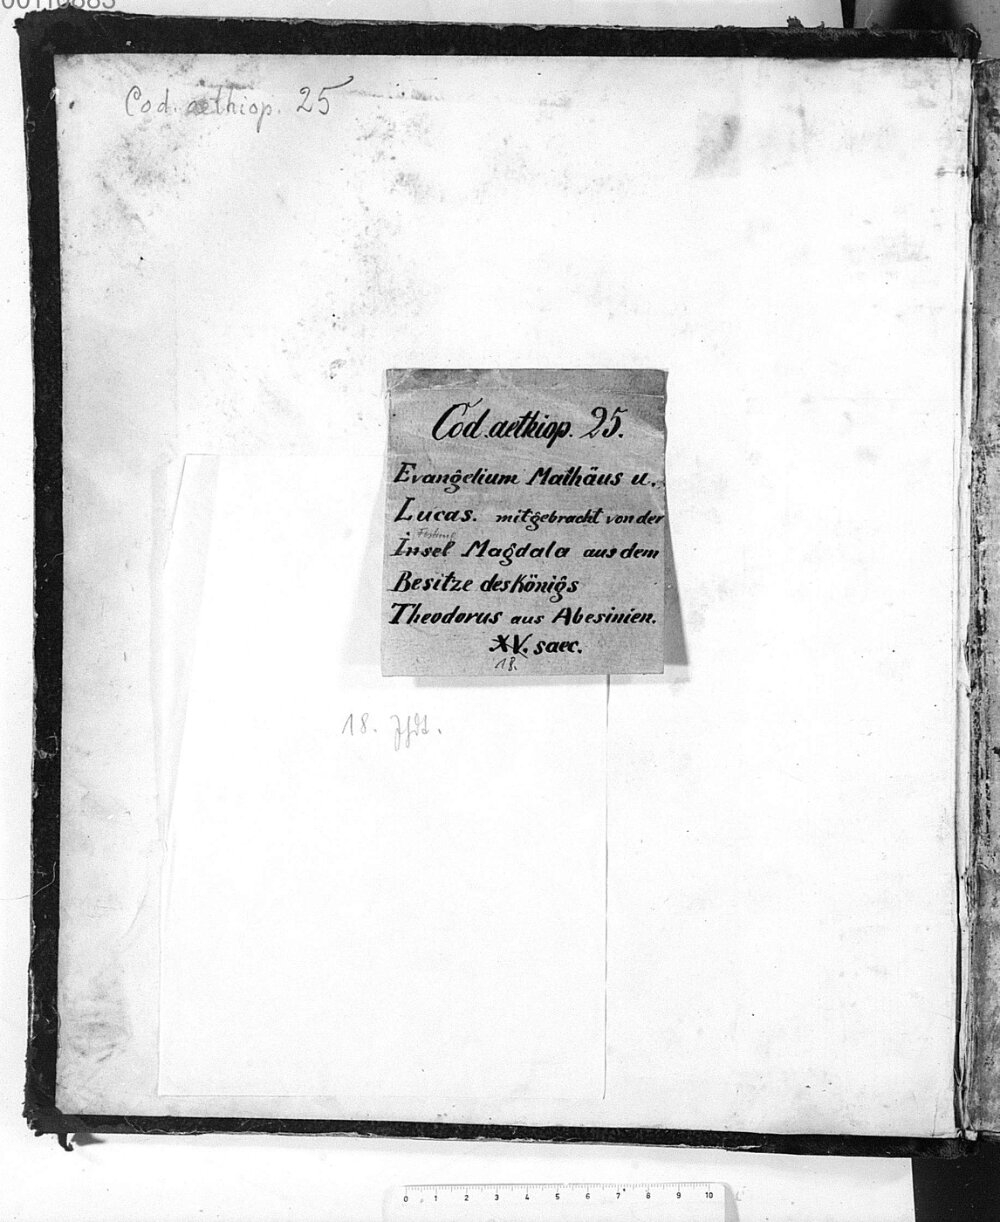 00110883
Cod. aethiop. 25
Cod. aethiop. 25.
Evangelium Mathäus u.
Lucas. mitgebracht von der
Festung
Insel Magdala aus dem
Besitze des Königs
Theodorus aus Abesinien.
XV. saec.
18.
18. Jhdt.
0 1 2 3 4 5 6 7 8 9 10